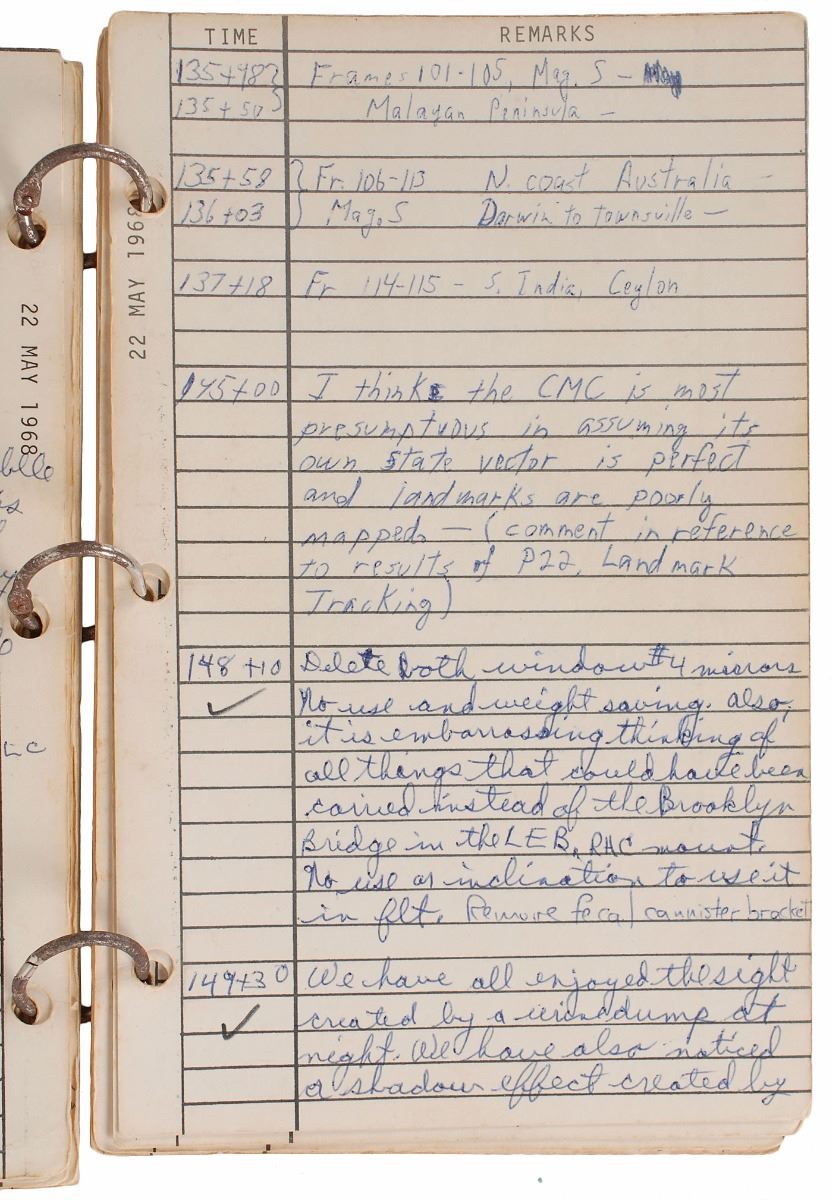 TIME REMARKS
135+48 Frames 101-105, Mag. S –
135+50 Malayan Peninsula –
135+58 Fr. 106-113 N. coast Australia –
136+03 Mag. S Darwin to Townsville –
137+18 Fr 114-115 – S. India, Ceylon
145+00 I think the CMC is most
presumptuous in assuming its
own state vector is perfect
and landmarks are poorly
mapped – (comment in reference
to results of P22, Landmark
Tracking)
148+10 Delete both window #4 mirrors
No use and weight saving. Also,
it is embarrassing thinking of
all things that could have been
carried instead of the Brooklyn
Bridge in the LEB, RHC mount.
No use or inclination to use it
in flt. Remove fecal cannister bracket
149+30 We have all enjoyed the sight
created by a urine dump at
night. We have also noticed
a shadow effect created by
22 MAY 1968
22 MAY 1968
LC